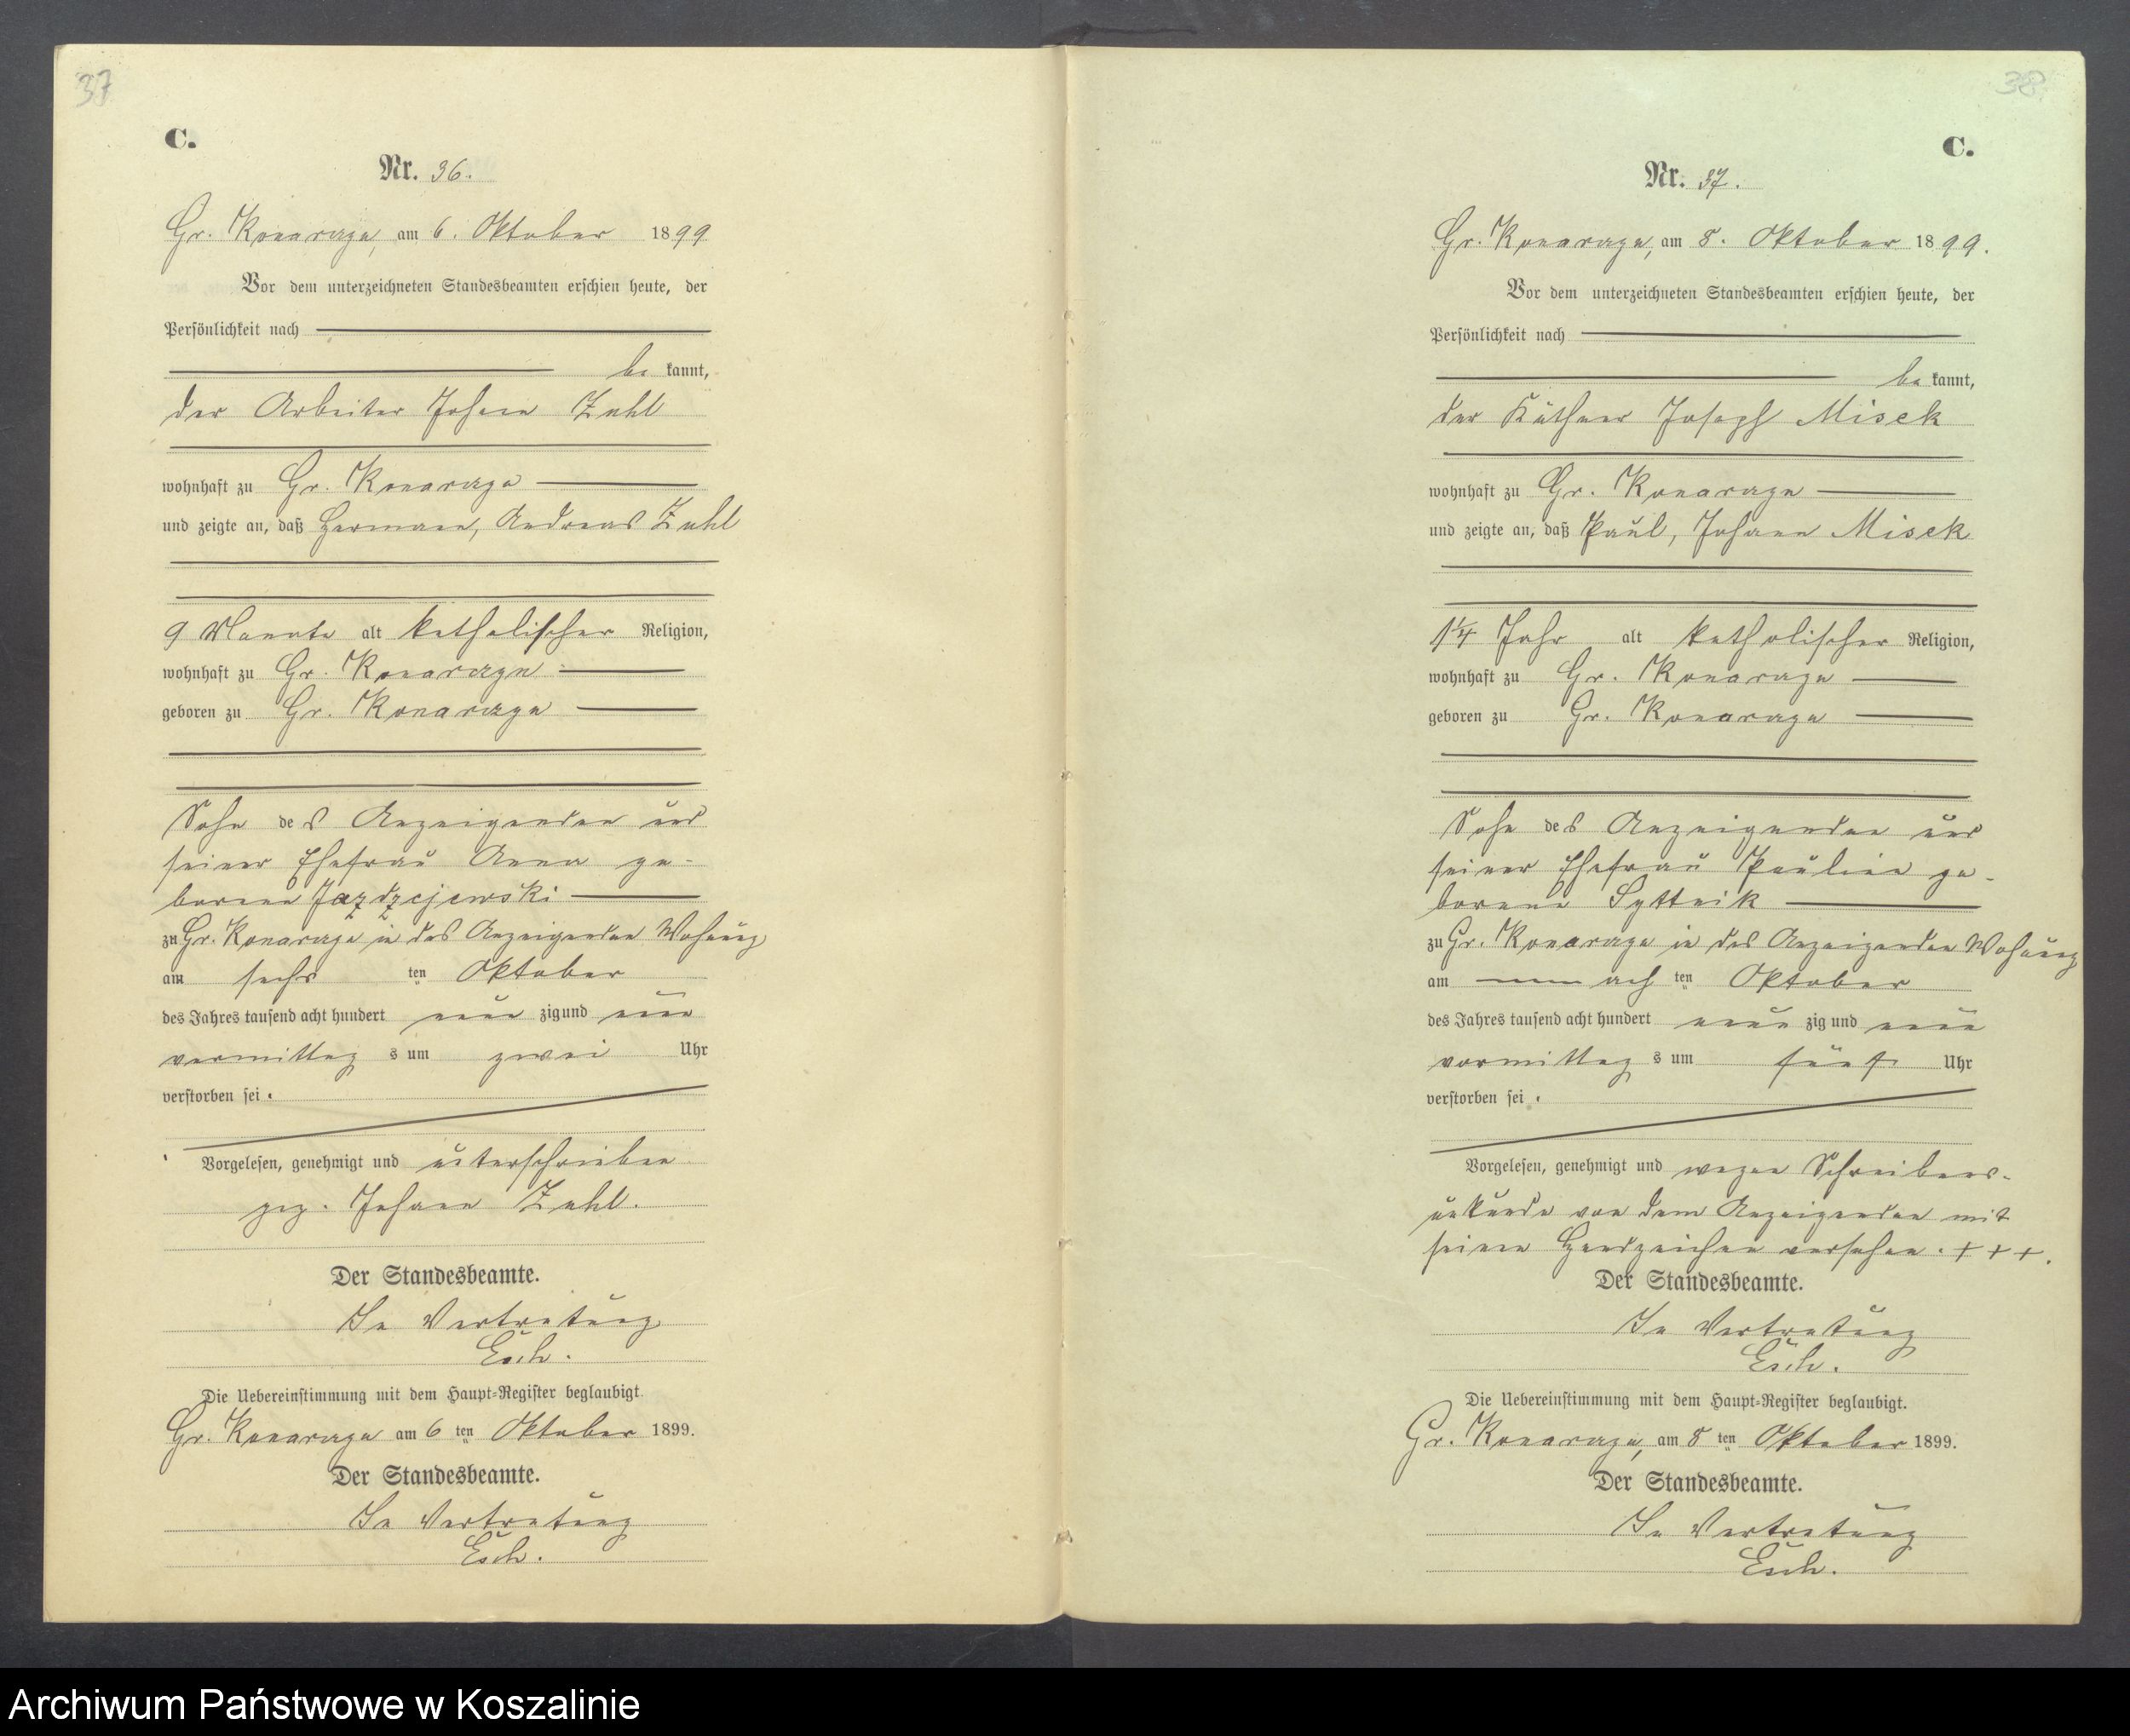 37
C.
Nr. 36.
Gr. Konarczyn, am 6. Oktober 1899
Vor dem unterzeichneten Standesbeamten erschien heute, der
Persönlichkeit nach
be kannt,
der Arbeiter Johann Zuhl
wohnhaft zu Gr. Konarczyn
und zeigte an, daß Hermann, Andreas Zuhl
9 Monate alt katholischer Religion,
wohnhaft zu Gr. Konarczyn
geboren zu Gr. Konarczyn
Sohn des Anzeigenden und
seiner Ehefrau Anna ge-
borene
zu Gr. Konarczyn in des Anzeigenden Wohnung
am sechs ten Oktober
des Jahres tausend acht hundert neun zig und neun
vormittag s um zwei Uhr
verstorben sei.
Vorgelesen, genehmigt und unterschrieben
gez. Johann Zuhl.
Der Standesbeamte.
In Vertretung
Esch.
Die Uebereinstimmung mit dem Haupt-Register beglaubigt.
Gr. Konarczyn am 6 ten Oktober 1899.
Der Standesbeamte.
In Vertretung
Esch.
38
C.
Nr. 37.
Gr. Konarczyn, am 8. Oktober 1899.
Vor dem unterzeichneten Standesbeamten erschien heute, der
Persönlichkeit nach
be kannt,
der Käthner Joseph Misek
wohnhaft zu Gr. Konarczyn
und zeigte an, daß Paul, Johann Misek
1 1/4 Jahr alt katholischer Religion,
wohnhaft zu Gr. Konarczyn
geboren zu Gr. Konarczyn
Sohn des Anzeigenden und
seiner Ehefrau Paulina ge-
borene
zu Gr. Konarczyn in des Anzeigenden Wohnung
am ach ten Oktober
des Jahres tausend acht hundert neun zig und neun
vormittag s um fünf Uhr
verstorben sei.
Vorgelesen, genehmigt und wegen Schreibens-
unkunde von dem Anzeigenden mit
seinen Handzeichen versehen. + + +.
Der Standesbeamte.
In Vertretung
Esch.
Die Uebereinstimmung mit dem Haupt-Register beglaubigt.
Gr. Konarczyn, am 8 ten Oktober 1899.
Der Standesbeamte.
In Vertretung
Esch.
Archiwum Państwowe w Koszalinie